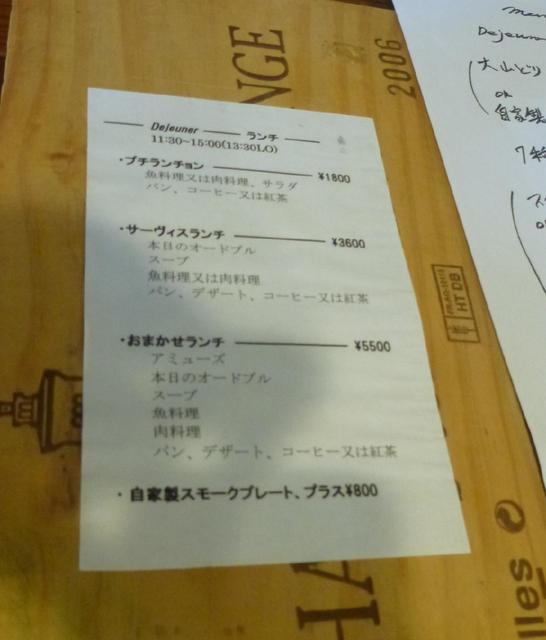 Dejeuner ランチ
11:30~15:00(13:30LO)
・プチランチョン ¥1800
魚料理又は肉料理、サラダ
パン、コーヒー又は紅茶
・サーヴィスランチ ¥3600
本日のオードブル
スープ
魚料理又は肉料理
パン、デザート、コーヒー又は紅茶
・おまかせランチ ¥5500
アミューズ
本日のオードブル
スープ
魚料理
肉料理
パン、デザート、コーヒー又は紅茶
・自家製スモークプレート、プラス¥800
2006
HT DB
lles
Dejeuner
大山どり
or
自家製